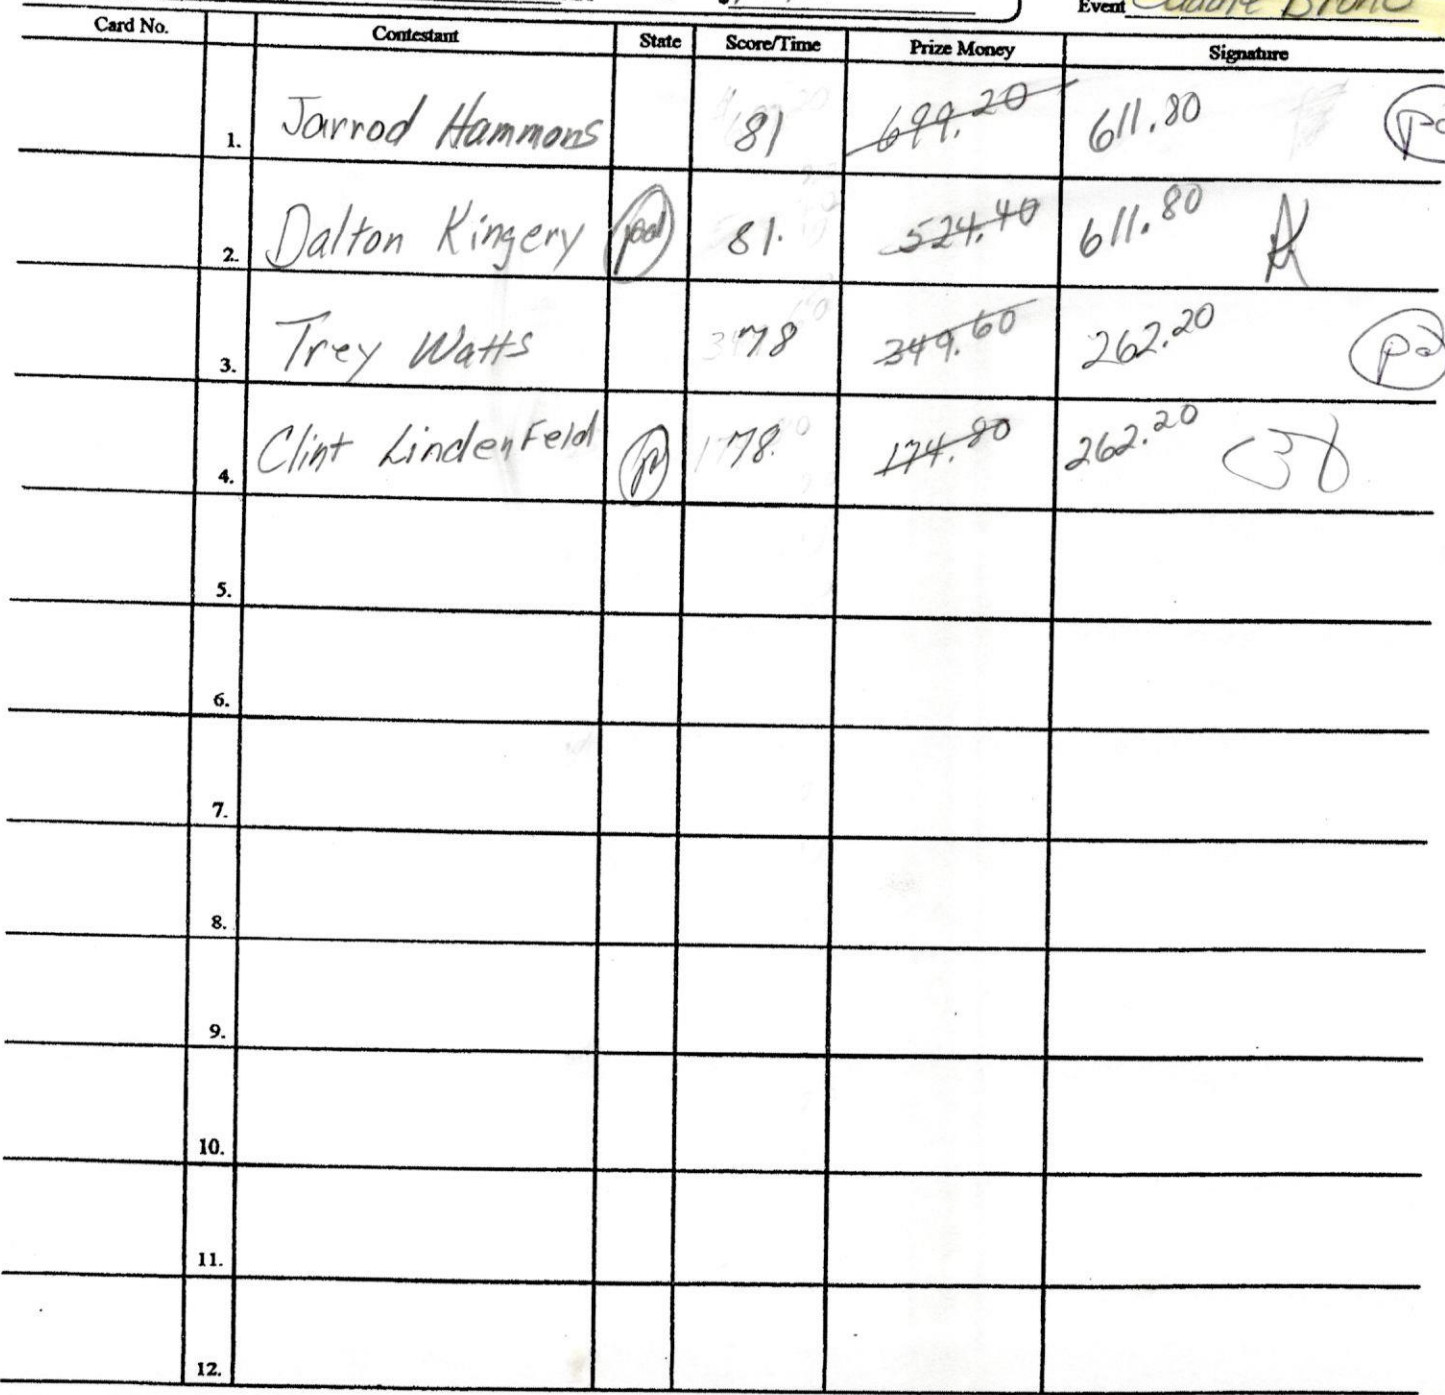 Event Saddle Bronc
Card No. Contestant State Score/Time Prize Money Signature
1. Jarrod Hammons 81 699.20 611.80 pd
2. Dalton Kingery pd 81. 524.40 611.80
3. Trey Watts 78 349.60 262.20 pd
4. Clint LindenFeld 78. 174.80 262.20
5.
6.
7.
8.
9.
10.
11.
12.